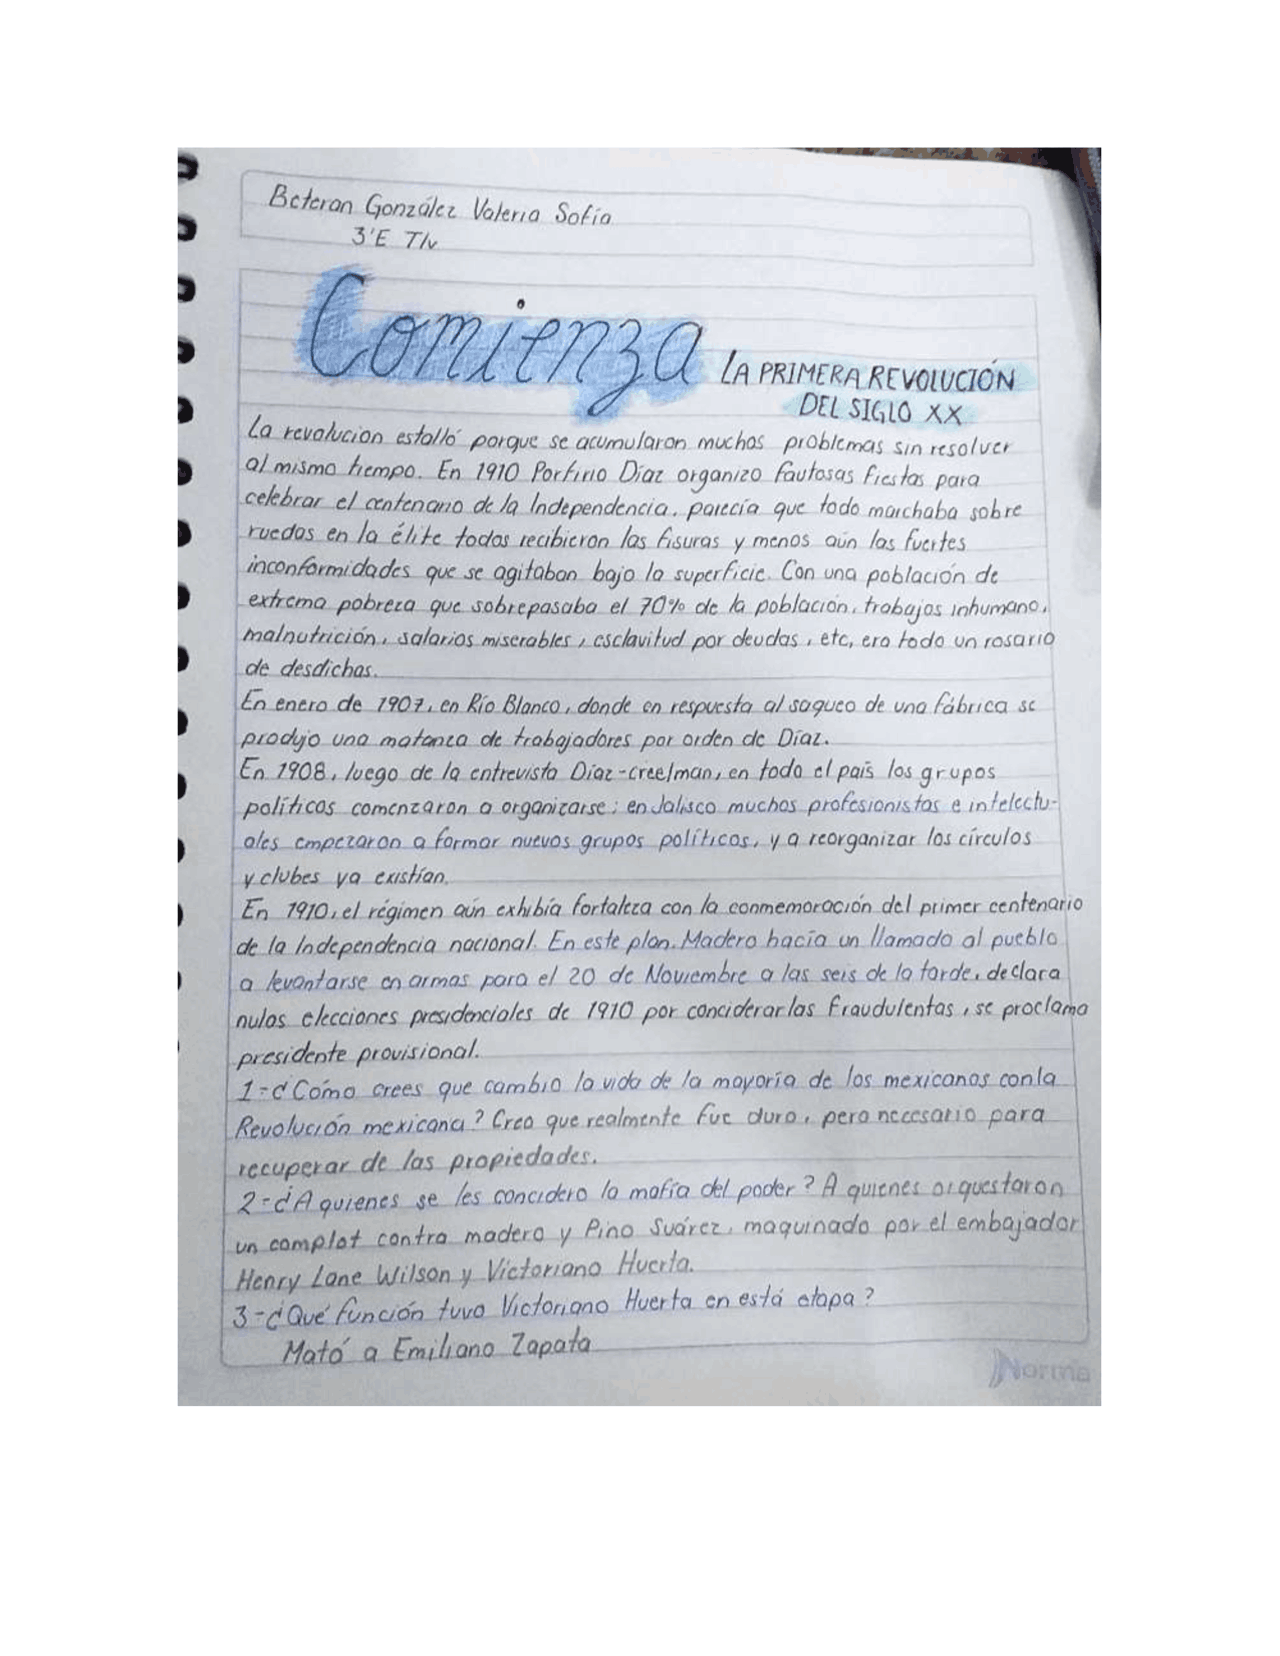 Beteran González Valeria Sofía
3'E T/v
Comienza LA PRIMERA REVOLUCIÓN
DEL SIGLO XX
La revolucion estalló porque se acumularon muchos problemas sin resolver
al mismo tiempo. En 1910 Porfirio Díaz organizo fautosas fiestas para
celebrar el centenario de la Independencia, parecía que todo marchaba sobre
ruedas en la élite todas recibieron las fisuras y menos aún las fuertes
inconformidades que se agitaban bajo la superficie. Con una población de
extrema pobreza que sobrepasaba el 70% de la población, trabajos inhumano,
malnutrición, salarios miserables, esclavitud por deudas, etc, era todo un rosario
de desdichas.
En enero de 1907, en Río Blanco, donde en respuesta al saqueo de una fábrica se
produjo una matanza de trabajadores por orden de Díaz.
En 1908, luego de la entrevista Díaz-creelman, en todo el país los grupos
políticos comenzaron a organizarse; en Jalisco muchos profesionistas e intelectu-
ales empezaron a formar nuevos grupos políticos, y a reorganizar los círculos
y clubes ya existían.
En 1910, el régimen aún exhibía fortaleza con la conmemoración del primer centenario
de la Independencia nacional. En este plan, Madero hacía un llamado al pueblo
a levantarse en armas para el 20 de Noviembre a las seis de la tarde, declara
nulas elecciones presidenciales de 1910 por conciderarlas fraudulentas, se proclama
presidente provisional.
1-¿Cómo crees que cambio la vida de la mayoría de los mexicanos conla
Revolución mexicana? Creo que realmente fue duro, pero necesario para
recuperar de las propiedades.
2-¿A quienes se les concidero la mafía del poder? A quienes orquestaron
un complot contra madero y Pino Suárez, maquinado por el embajador
Henry Lane Wilson y Victoriano Huerta.
3-¿Qué función tuvo Victoriano Huerta en está etapa?
Mató a Emiliano Zapata
Norma